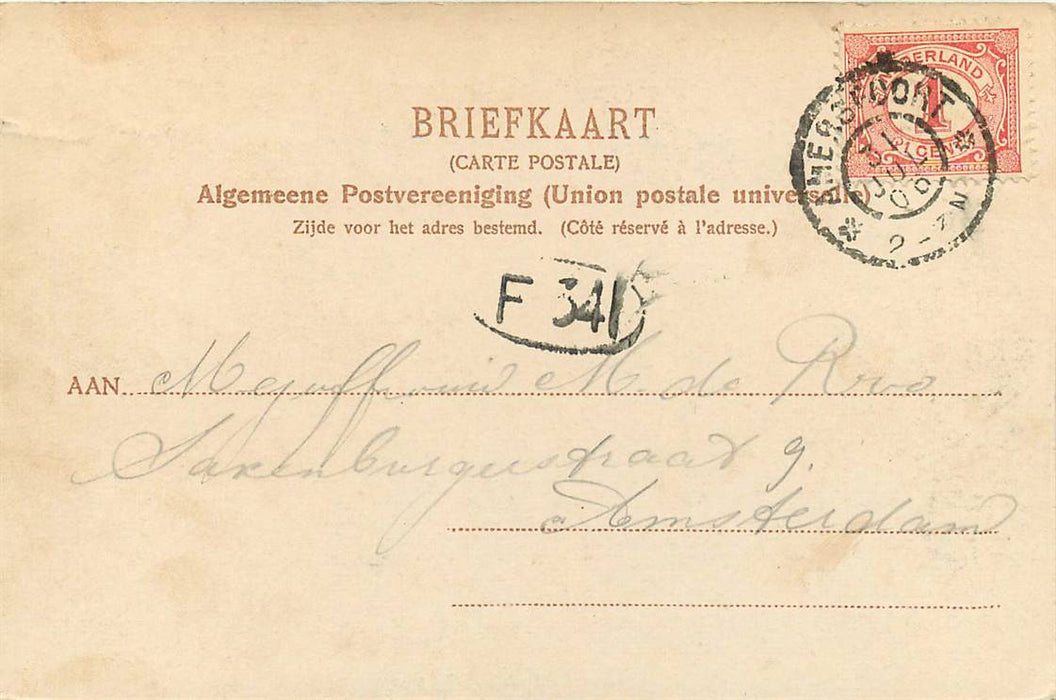 NEDERLAND
1
CENT
AMERSFOORT
31 JUL 06
2-7N
BRIEFKAART
(CARTE POSTALE)
Algemeene Postvereeniging (Union postale universelle)
Zijde voor het adres bestemd. (Côté réservé à l'adresse.)
F 341
AAN Mejuffrouw M. de Roos
Saxenburgerstraat 9.
Amsterdam